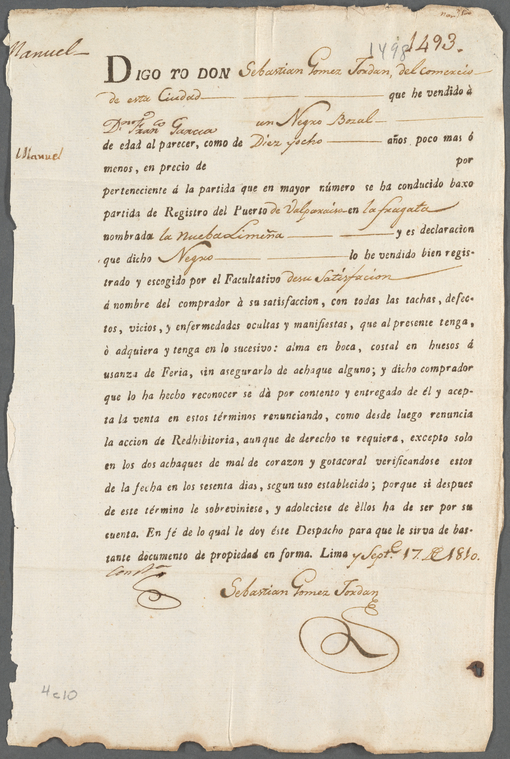 Manuel
1498 1493.
DIGO YO DON Sebastian Gomez Jordan, del comercio
de esta Ciudad que he vendido à
Dn. Franco. Garcia un Negro Bozal
Manuel
de edad al parecer, como de Diez yocho años, poco mas ó
menos, en precio de por
perteneciente á la partida que en mayor número se ha conducido baxo
partida de Registro del Puerto de Valparaiso en la fragata
nombrada la Nueba Limeña y es declaracion
que dicho Negro lo he vendido bien regis-
trado y escogido por el Facultativo desu Satisfacion
á nombre del comprador à su satisfaccion, con todas las tachas, defec-
tos, vicios, y enfermedades ocultas y manifiestas, que al presente tenga,
ò adquiera y tenga en lo sucesivo: alma en boca, costal en huesos á
usanza de Feria, sin asegurarlo de achaque alguno; y dicho comprador
que lo ha hecho reconocer se dà por contento y entregado de él y acep-
ta la venta en estos términos renunciando, como desde luego renuncia
la accion de Redhibitoria, aunque de derecho se requiera, excepto solo
en los dos achaques de mal de corazon y gotacoral verificandose estos
de la fecha en los sesenta dias, segun uso establecido; porque si despues
de este término le sobreviniese, y adoleciese de èllos ha de ser por su
cuenta. En fé de lo qual le doy éste Despacho para que le sirva de bas-
tante documento de propiedad en forma. Lima y Septe. 17. de 1810.
Sebastian Gomez Jordan
4c10